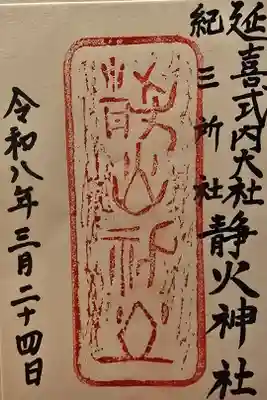 延喜式内大社
紀三所社
静火神社
令和八年三月二十四日